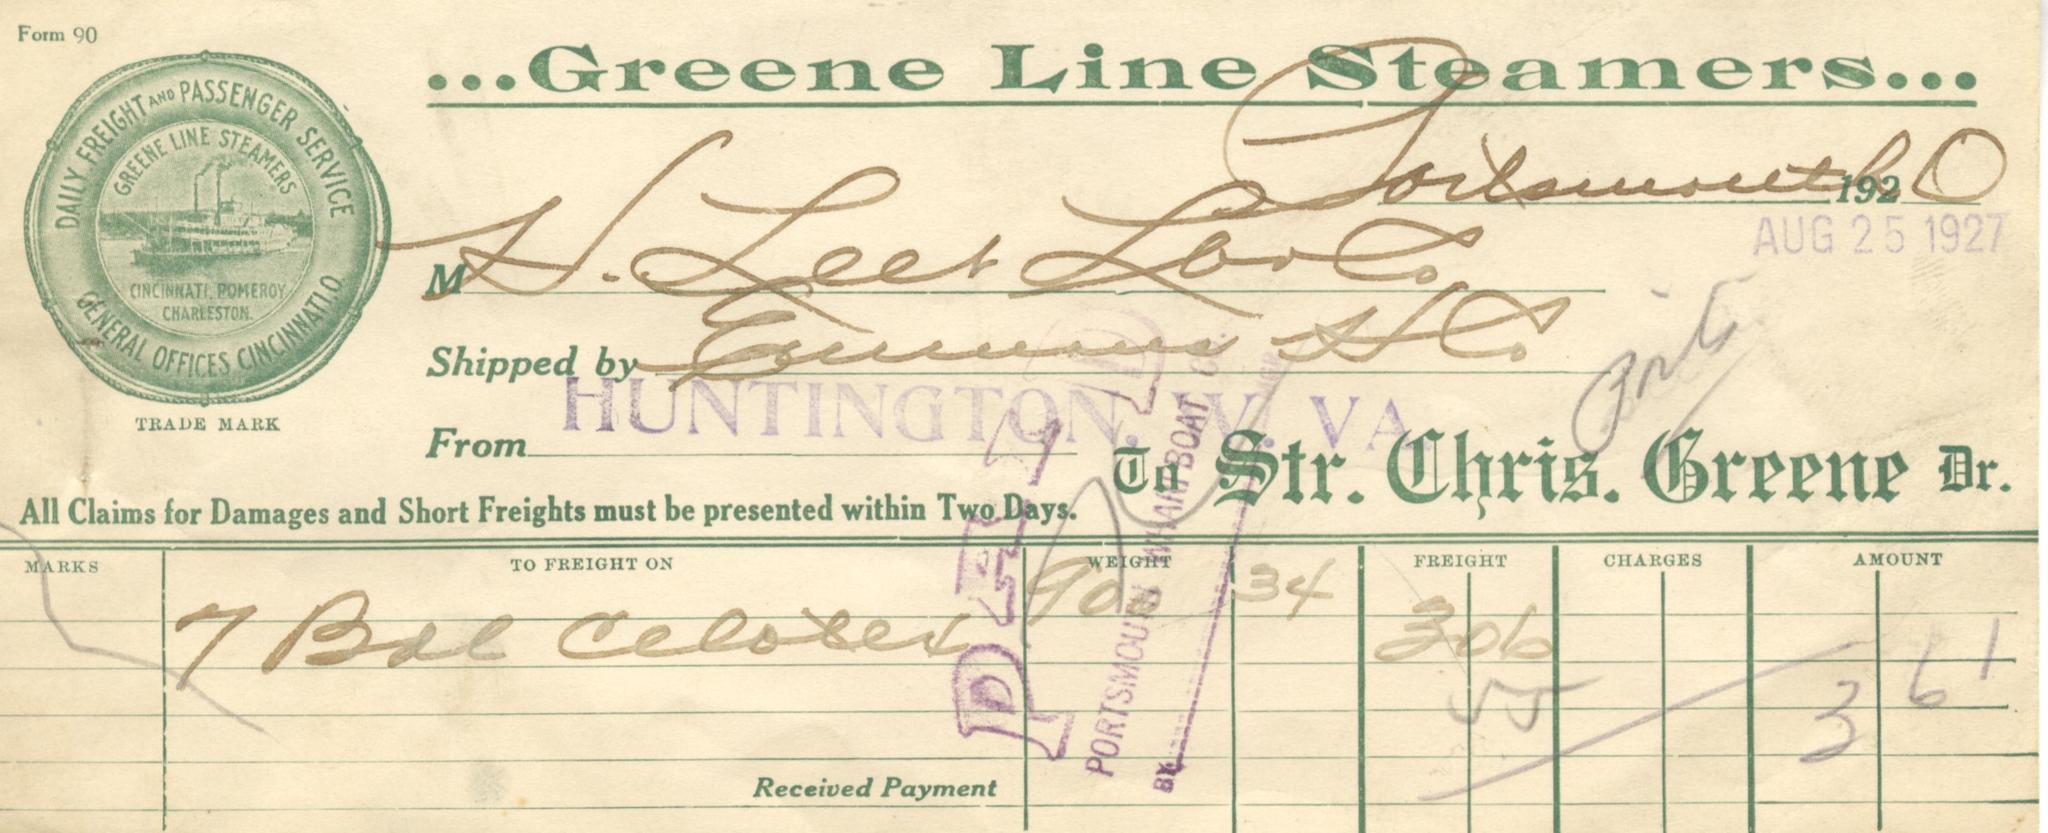 Form 90
...Greene Line Steamers...
DAILY FREIGHT AND PASSENGER SERVICE
GREENE LINE STEAMERS
CINCINNATI, POMEROY
CHARLESTON.
GENERAL OFFICES CINCINNATI. O.
TRADE MARK
Portsmouth O 192
AUG 25 1927
M H. Leet Lbr Co.
Shipped by Emmons H Co.
From HUNTINGTON. W. VA
Ports
To Str. Chris. Greene Dr.
All Claims for Damages and Short Freights must be presented within Two Days.
PAID
PORTSMOUTH WHARFBOAT CO.
BY
MARKS TO FREIGHT ON WEIGHT FREIGHT CHARGES AMOUNT
7 Bdl Celotex 900 34 306
55 3 61
Received Payment